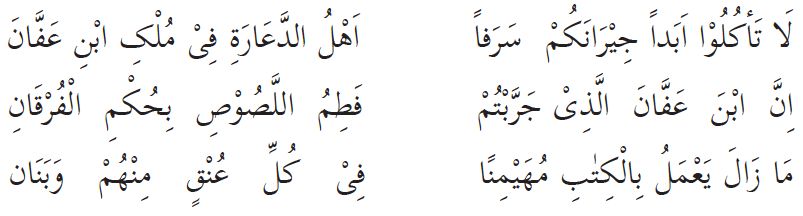 لَا تَأكُلُوْا اَبَداً جِيْرَانَكُمْ سَرَفاً اَهْلُ الدَّعَارَةِ فِىْ مُلْکِ ابْنِ عَفَّانَ
اِنَّ ابْنَ عَفَّانَ الَّذِىْ جَرَّبْتُمْ فَطِمُ اللَّصُوْصِ بِحُكْمِ الْفُرْقَانِ
مَا زَالَ يَعْمَلُ بِالْكِتٰبِ مُهَيْمِنًا فِىْ كُلِّ عُنْقٍ مِنْهُمْ وَبَنَان